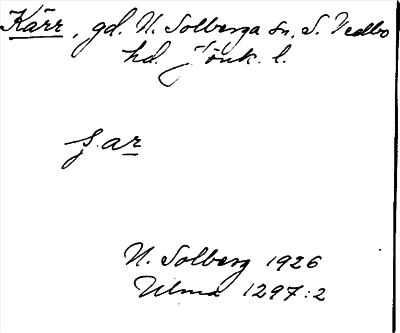 Kärr, gd. N. Solberga sn, S. Vedbo
hd. Jönk. l.
f. ar
N. Solberg 1926
Ulma 1297:2